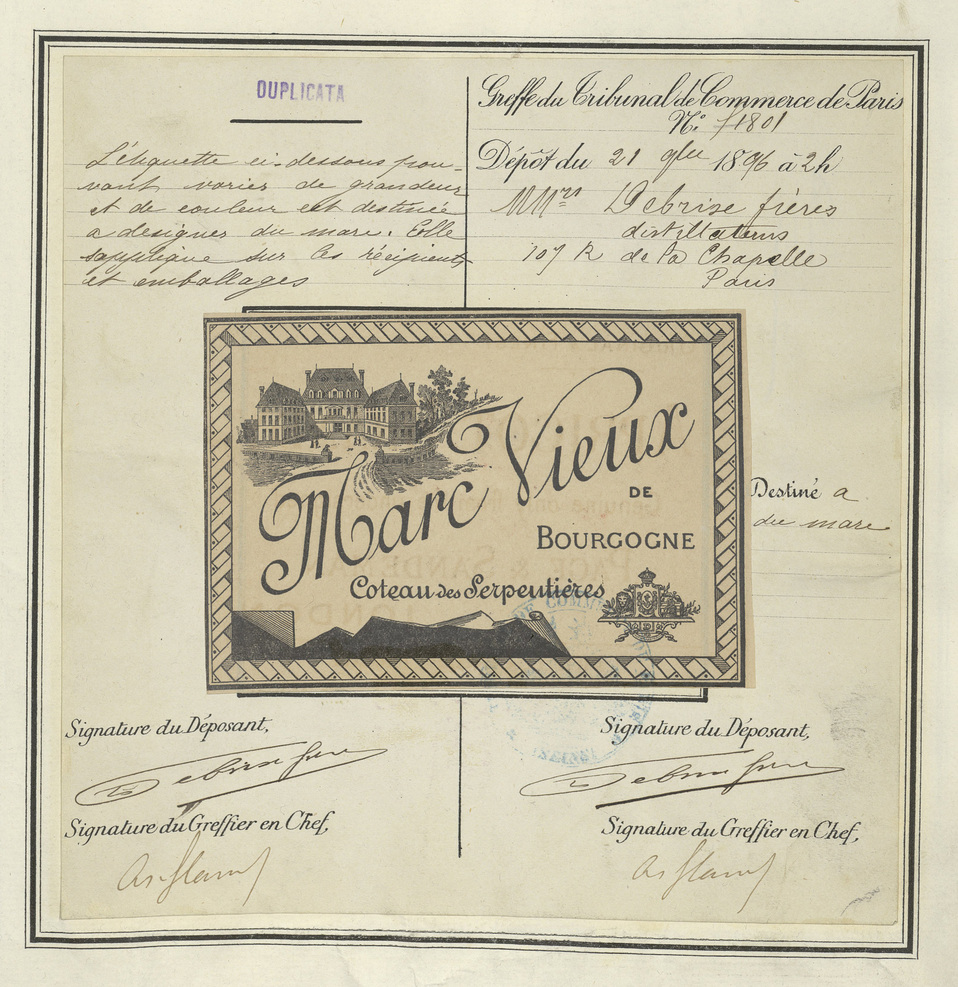 DUPLICATA
L'étiquette ci-dessous pou-
vant varier de grandeur
et de couleur est destinée
a désigner du marc. Elle
s'applique sur les récipients
et emballages
Greffe du Tribunal de Commerce de Paris
N°. 51801
Dépôt du 21 9bre 1896 à 2h
MMrs Debrise frères
distillateurs
107 R de la Chapelle
Paris
Marc Vieux
DE
BOURGOGNE
Coteau des Serpentières
Destiné a
du marc
Signature du Déposant,
Debrise frères
Signature du Greffier en Chef,
Signature du Déposant,
Debrise frères
Signature du Greffier en Chef,